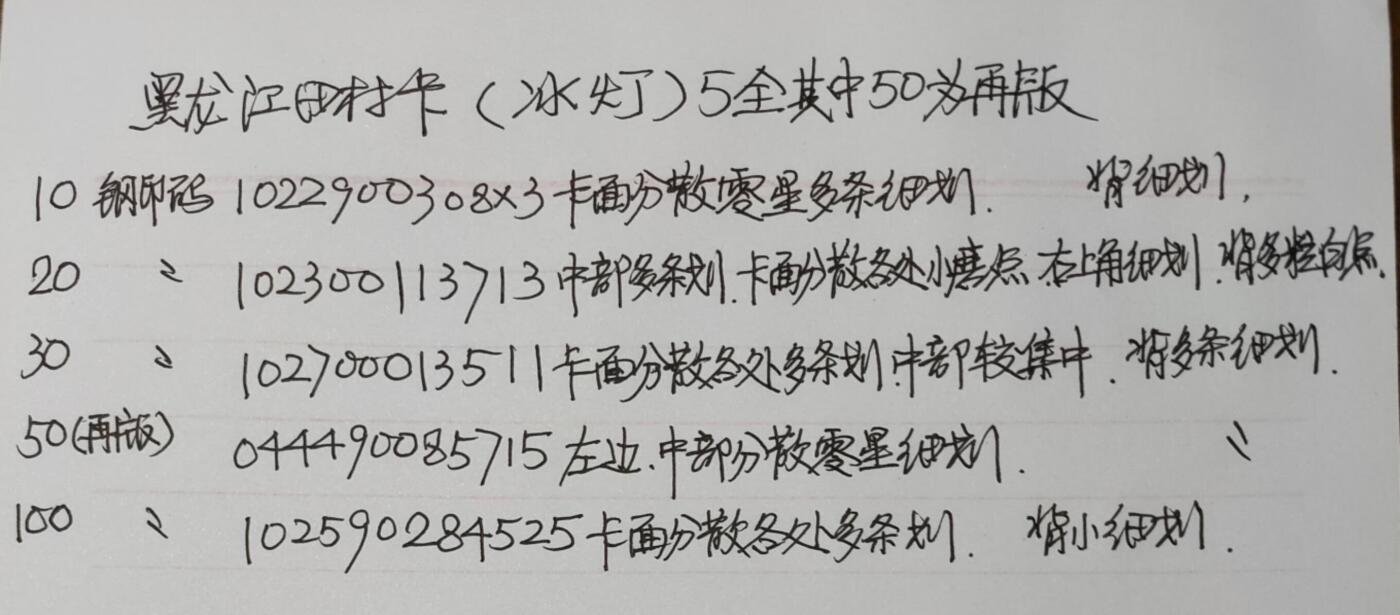 黑龙江田村卡(冰灯)5全其中50为再版
10 钢印码 1022900308x3 卡面分散零星多条细划. 背细划.
20 〃 102300113713 中部多条划.卡面分散各处小磨点.右上角细划.背多粒白点.
30 〃 102700013511 卡面分散各处多条划.中部较集中.背多条细划.
50(再版) 044490085715 左边.中部分散零星细划. 〃
100 〃 102590284525 卡面分散各处多条划. 背小细划.